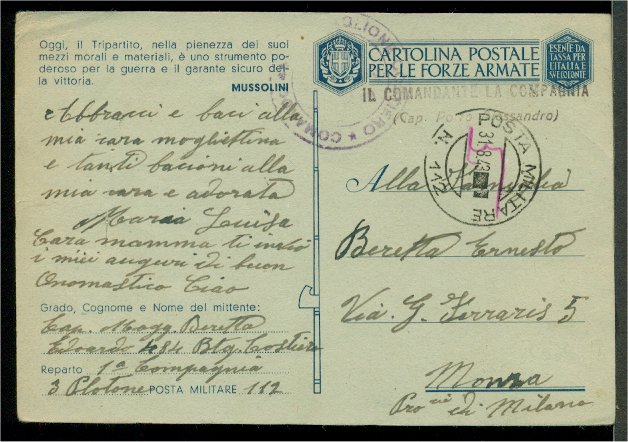 Oggi, il Tripartito, nella pienezza dei suoi
mezzi morali e materiali, è uno strumento po-
deroso per la guerra e il garante sicuro del-
la vittoria.
MUSSOLINI
Abbracci e baci alla
mia cara mogliettina
e tanti bacioni alla
mia cara e adorata
Maria Luisa
Cara mamma ti invio
i miei auguri di buon
Onomastico Ciao
Grado, Cognome e Nome del mittente:
Cap. Magg. Beretta
Edoardo 484 Btg. Costiero
Reparto 1ª Compagnia
3 Plotone POSTA MILITARE 112
CARTOLINA POSTALE
PER LE FORZE ARMATE
ESENTE DA
TASSA PER
L'ITALIA E
SUE COLONIE
IL COMANDANTE LA COMPAGNIA
(Cap. Alessandro)
POSTA MILITARE
N. 112
31.8.42
Alla Famiglia
Beretta Ernesto
Via G. Ferraris 5
Monza
Pro cia di Milano